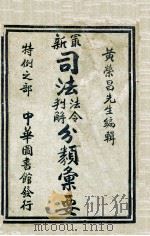 黃榮昌先生編輯
最新司法法令判解分類彙要
特例之部
中華圖書館發行